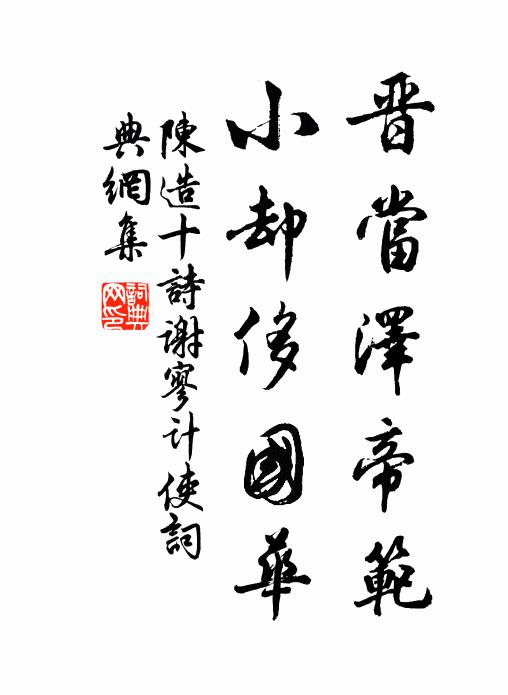 晋當澤帝範
小却侈國華
陳造十詩謝寥计使詞
典網集
詞典
网印